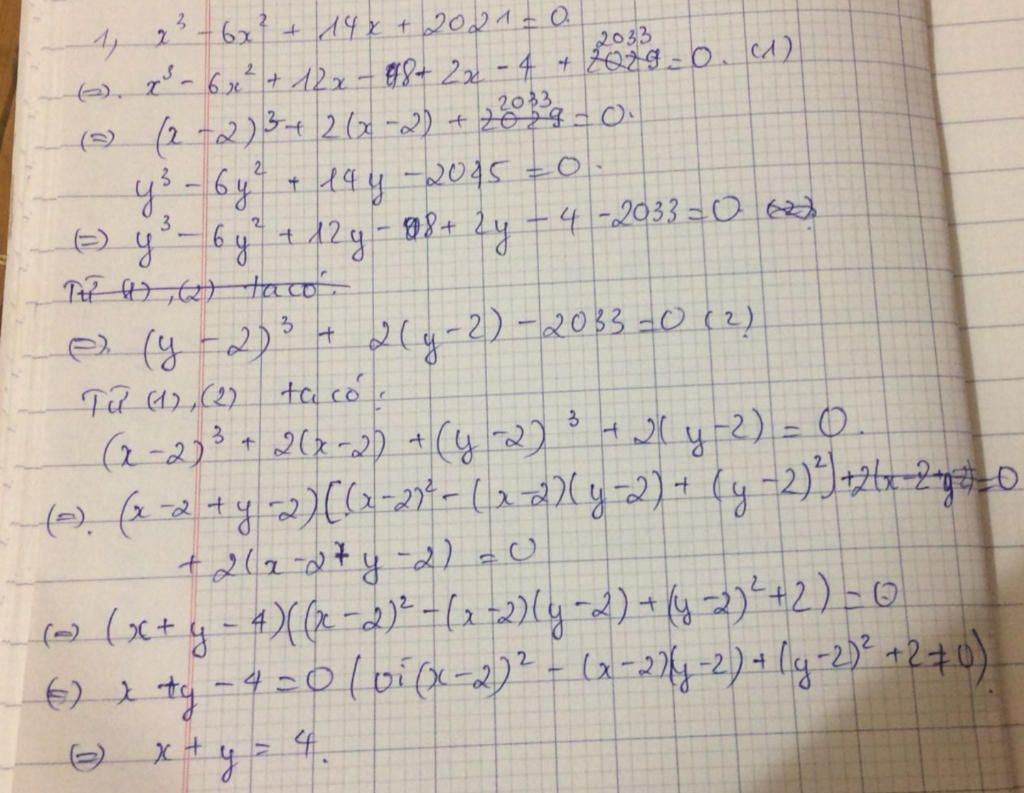 1, x³ - 6x² + 14x + 2021 = 0.
(=). x³ - 6x² + 12x - 8 + 2x - 4 + 2033 = 0. (1)
(=) (x - 2)³ + 2(x - 2) + 2033 = 0.
y³ - 6y² + 14y - 2045 = 0.
(=) y³ - 6y² + 12y - 8 + 2y - 4 - 2033 = 0 (2)
Từ (1), (2) ta có:
(=). (y - 2)³ + 2(y - 2) - 2033 = 0 (2)
Từ (1), (2) ta có:
(x - 2)³ + 2(x - 2) + (y - 2)³ + 2(y - 2) = 0.
(=). (x - 2 + y - 2)[(x - 2)² - (x - 2)(y - 2) + (y - 2)²] + 2(x - 2 + y - 2) = 0
+ 2(x - 2 + y - 2) = 0
(=) (x + y - 4)((x - 2)² - (x - 2)(y - 2) + (y - 2)² + 2) = 0
(=) x + y - 4 = 0 (vì (x - 2)² - (x - 2)(y - 2) + (y - 2)² + 2 ≠ 0).
(=) x + y = 4.